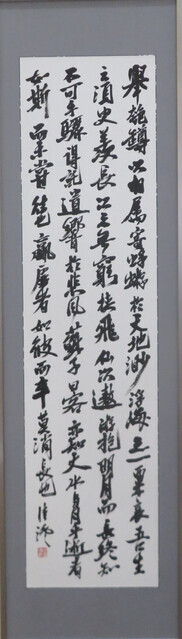 舉匏罇以相属寄蜉蝣於天地渺滄海之一粟哀吾生
之須臾羨長江之無窮挾飛仙以遨遊抱明月而長終知
不可乎驟得託遺響於悲風蘇子曰客亦知夫水与月乎逝者
如斯而未嘗往也贏虛者如彼而卒莫消長也